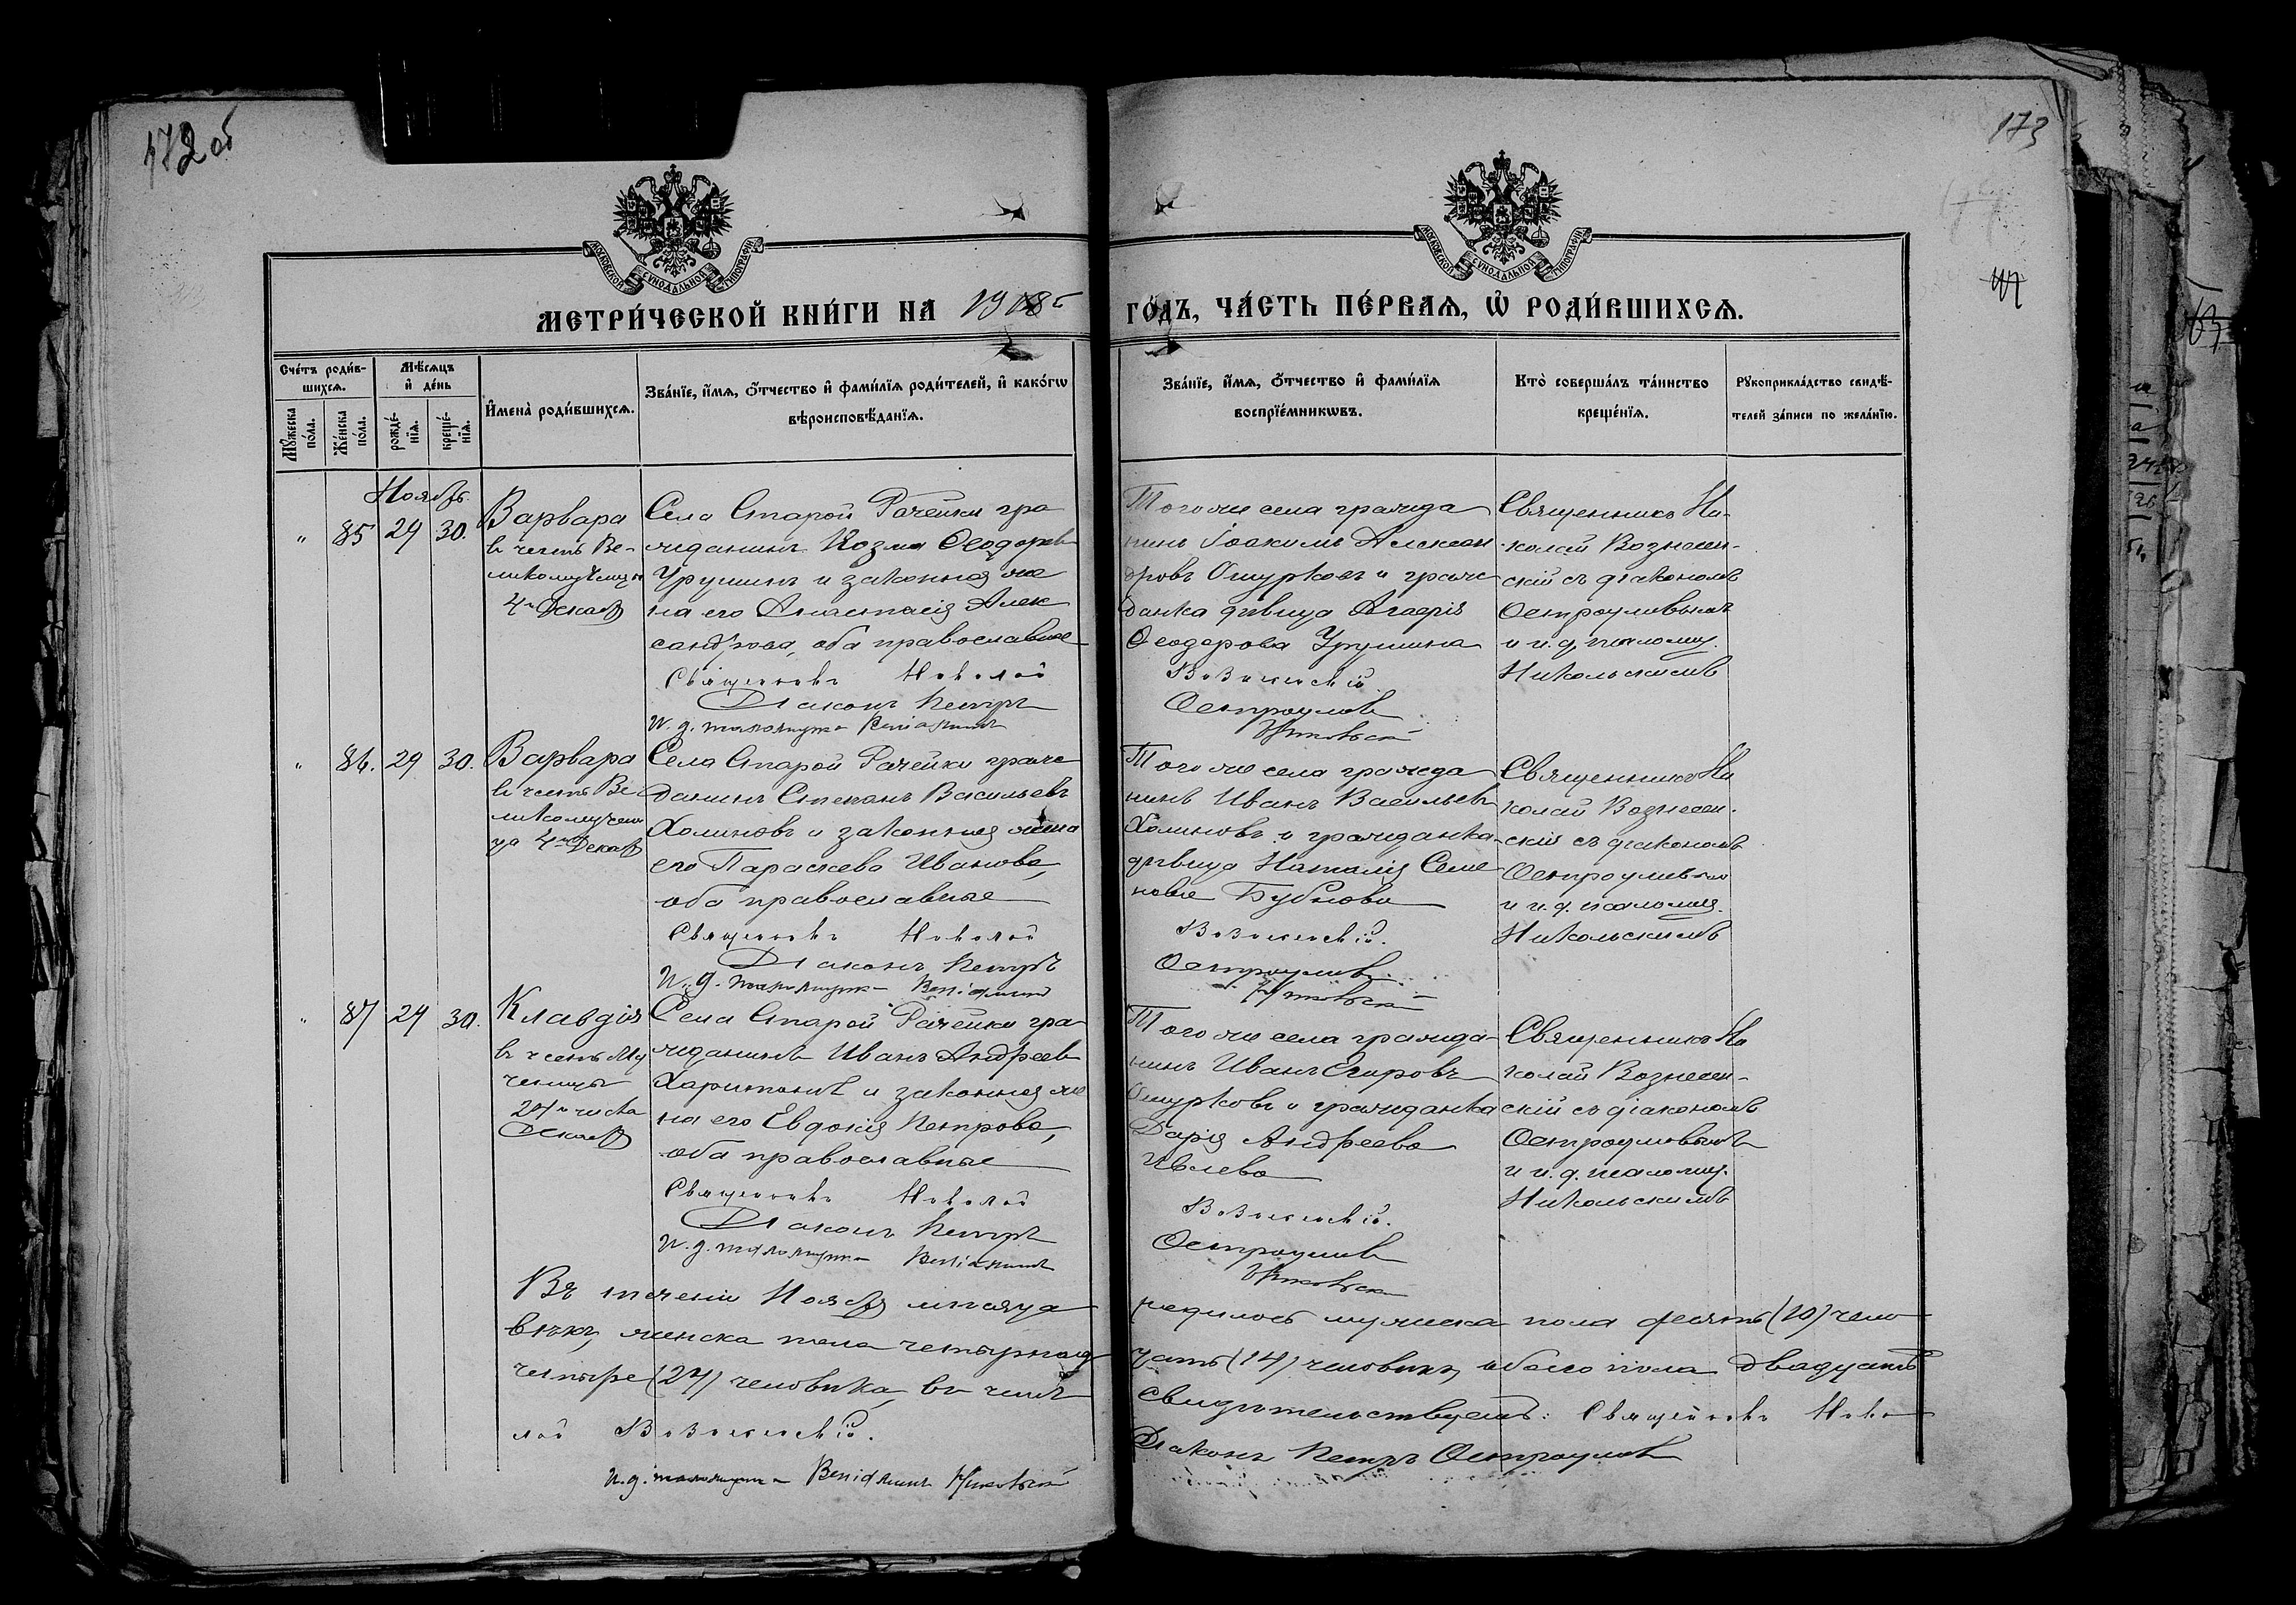 172 об
173
МОСКОВСКОЙ СУНОДАЛЬНОЙ ТИПОГРАФІИ
МОСКОВСКОЙ СУНОДАЛЬНОЙ ТИПОГРАФІИ
МЕТРИ́ЧЕСКОЙ КНИ́ГИ НА 1918
ГО́ДЪ, ЧА́СТЬ ПЕ́РВАѦ, Ѽ РОДИ́ВШИХСѦ.
Сче́тъ роди́в-
шихсѧ.
Мꙋжеска по́ла.
Же́нска пола.
Мѣ́сѧцъ
и҆ де́нь
рожде́-
нїѧ.
креще́-
нїѧ.
И҆мена̀ роди́вшихсѧ.
Зва́нїе, и҆́мѧ, ѻ҆́тчество и҆ фами́лїѧ роди́телей, и҆ како́гѡ
вѣроисповѣ́данїѧ.
Зва́нїе, и҆́мѧ, ѻ҆́тчество и҆ фами́лїѧ
воспрїе́мникѡвъ.
Кто̀ соверша́лъ та́инство
креще́нїѧ.
Рꙋкоприкла́дство свидѣ́-
телей за́писи по жела́нїю.
Ноябрь
" 85 29 30.
Варвара
въ честь Ве-
ликомученицы
4го Декабр
Села Старой Рачейки гра
жданинъ Козма Ѳеодоровъ
Урушинъ и законная же
на его Анастасія Алек
сандрова, оба православные
Священникъ Николай
Діаконъ Петръ
И. д. псаломщика Веніаминъ
Того же села гражда
нинъ Іоакимъ Алексан
дровъ Ошурковъ и граж
данка дѣвица Агаѳія
Ѳеодорова Урушина
Вознесенскій
Остроумовъ
Никольскій
Священникъ Ни-
колай Вознесен-
скій съ діакономъ
Остроумовымъ
и и. д. псаломщ.
Никольскимъ
" 86. 29 30.
Варвара
въ честь Ве
ликомучени
цы 4го Декабр
Села Старой Рачейки граж
данинъ Степанъ Васильевъ
Холиновъ и законная жена
его Параскева Иванова,
оба православные
Священникъ Николай
Діаконъ Петръ
И. д. псаломщика Веніаминъ
Того же села гражда
нинъ Иванъ Васильевъ
Холиновъ и гражданка
дѣвица Наталія Семе
нова Бубнова
Вознесенскій.
Остроумовъ
Никольскій
Священникъ Ни
колай Вознесен-
скій съ діакономъ
Остроумовымъ
и и. д. псаломщ.
Никольскимъ
" 87 29 30.
Клавдія
въ честь Му
ченицы
24го числа
Декабр
Села Старой Рачейки гра
жданинъ Иванъ Андреевъ
Харитоновъ и законная же
на его Евдокія Петрова,
оба православные
Священникъ Николай
Діаконъ Петръ
И. д. псаломщика Веніаминъ
Того же села гражда-
нинъ Иванъ Егоровъ
Ошурковъ и гражданка
Дарія Андреева
Ивлева
Вознесенскій.
Остроумовъ
Никольскій
Священникъ Ни
колай Вознесен-
скій съ діакономъ
Остроумовымъ
и и. д. псаломщ.
Никольскимъ
Въ теченіи Ноября мѣсяца родилось мужска пола десять (10) чело
вѣкъ, женска пола четырнад цать (14) человѣкъ, обоего пола двадцать
четыре (24) человѣка, въ чемъ свидѣтельствуемъ: Священникъ Нико
лай Вознесенскій. Діаконъ Петръ Остроумовъ
И. д. псаломщика Веніаминъ Никольскій